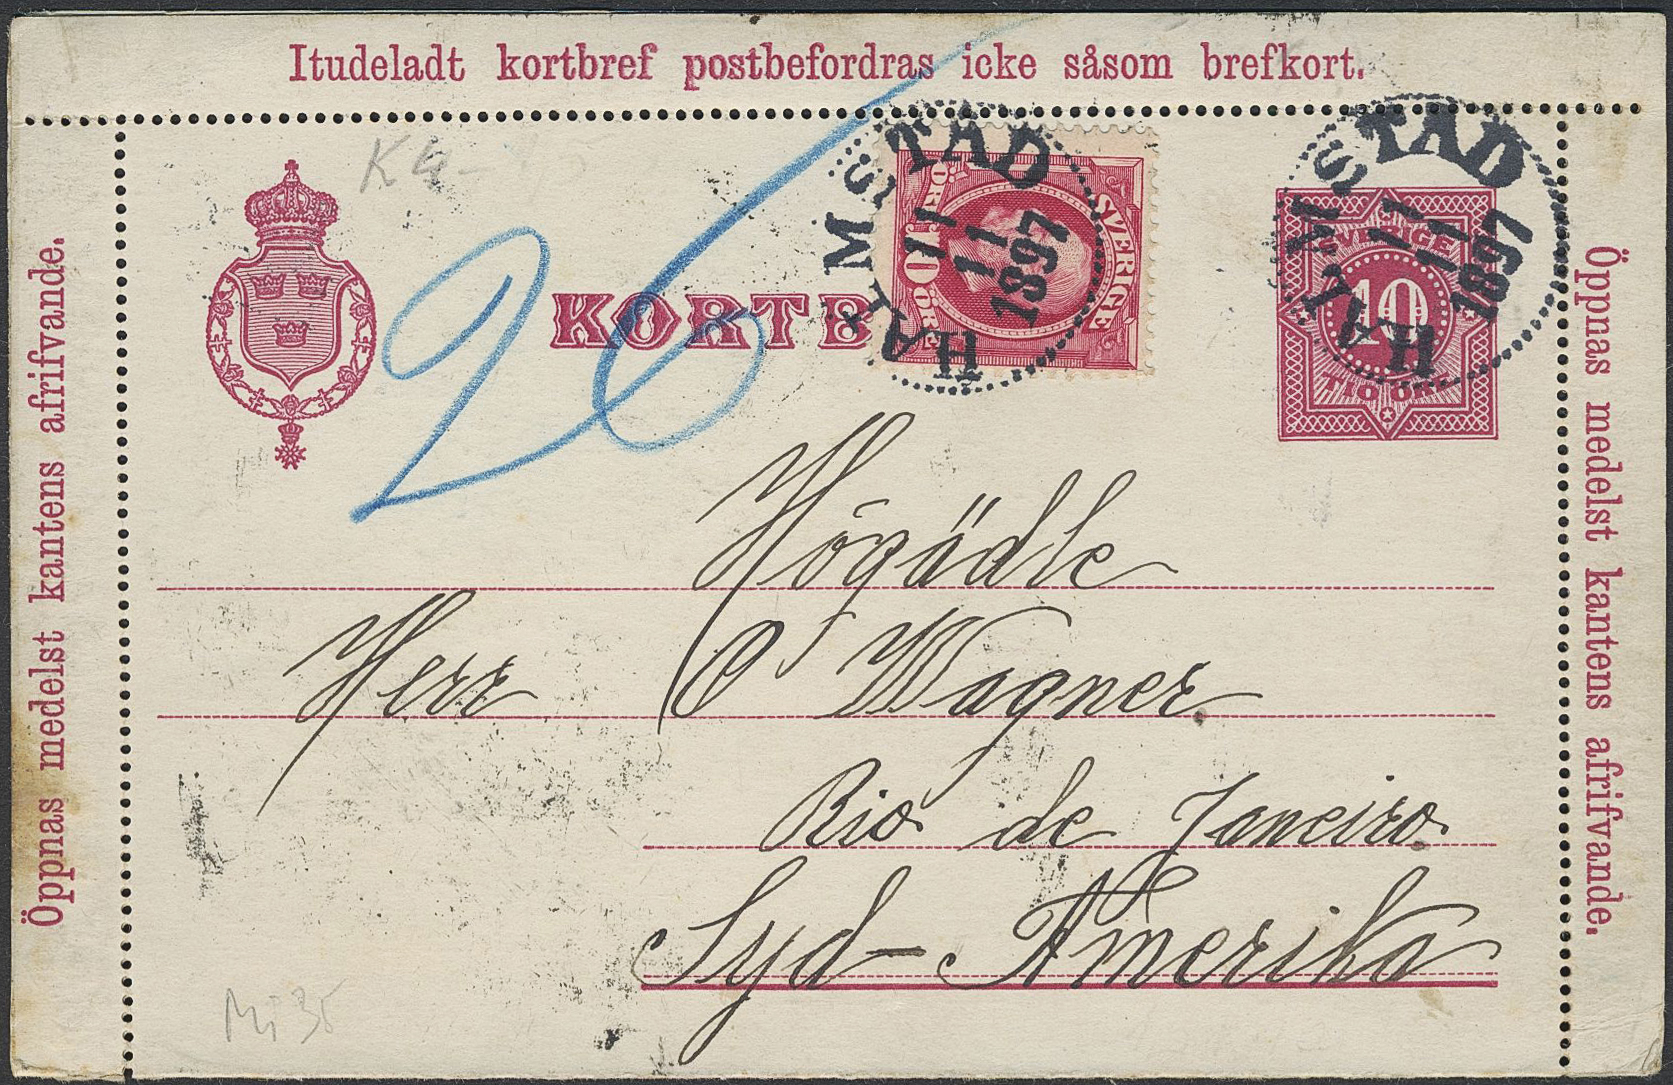 Itudeladt kortbref postbefordras icke såsom brefkort.
Öppnas medelst kantens afrifvande.
K4-
26
KORTB
SVERIGE
10 ÖRE
ÖRE
HALMSTAD
11
11
1897
SVERIGE
10
TIO ÖRE
HALMSTAD
11
11
1897
Öppnas medelst kantens afrifvande.
Högädle
Herr O Wagner
Rio de Janeiro
Syd-Amerika
Mi 35